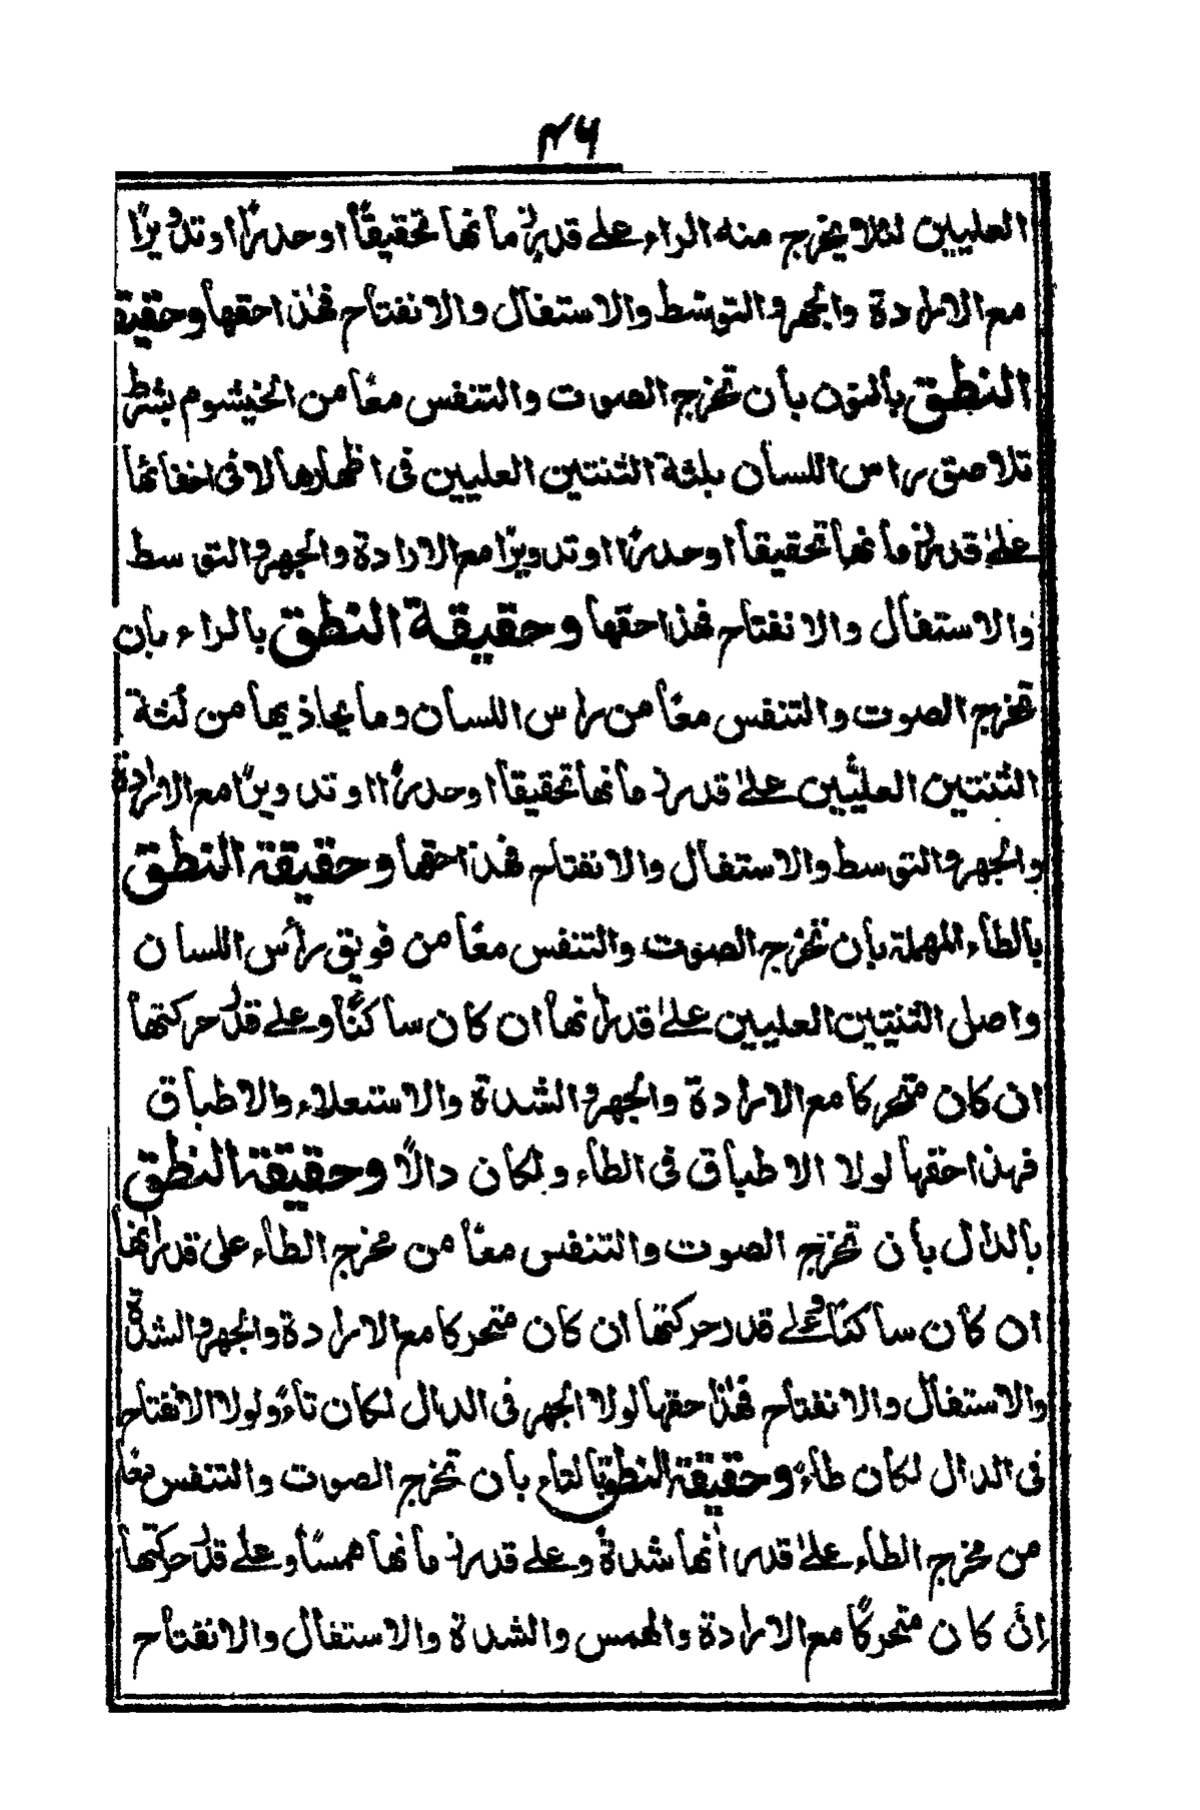 ٤٦
العليين لئلا يخرج منه الراء على قدر زمانها تحقيقًا او حدرًا او تدويرًا
مع الارادة والجهر والتوسّط والاستفال والانفتاح فهٰذا حقها وحقيقة
النطق بالنون بأن تخرج الصوت والتنفس معًا من الخيشوم بشرط
تلاصق راس اللسان بلثة الثنتين العليين فى اظهارها لا فى اخفائها
علىٰ قدر زمانها تحقيقاً او حدرًا او تدويرًا مع الارادة والجهر والتوسط
والاستفال والانفتاح فهٰذا حقها وحقيقة النطق بالراء بان
تخرج الصوت والتنفس معًا من راس اللسان وما يحاذيها من لثة
الثنتين العليّين علىٰ قدر زمانها تحقيقاً او حدرًا او تدويرًا مع الارادة
والجهر والتوسط والاستفال والانفتاح فهٰذا حقها وحقيقة النطق
بالطاء المهملة بان تخرج الصوت والتنفس معًا من فويق رأس اللسان
واصل الثنيتين العليين علىٰ قدر انها ان كان ساكنًا وعلى قدر حركتها
ان كان متحركا مع الارادة والجهر والشدة والاستعلاء والاطباق
فهذا حقها لولا الاطباق فى الطاء ولكان دالًا وحقيقة النطق
بالدال بان تخرج الصوت والتنفس معًا من مخرج الطاء على قدر انها
ان كان ساكنًا وعلى قدر حركتها ان كان متحركا مع الارادة والجهر والشدة
والاستفال والانفتاح فهٰذا حقها لولا الجهر فى الدال لكان تاءً ولولا الانفتاح
فى الدال لكان طاءً وحقيقة النطق بالتاء بأن تخرج الصوت والتنفس معًا
من مخرج الطاء علىٰ قدر انها شدةً وعلى قدر زمانها همسًا وعلى قدر حركتها
ان كان متحركًا مع الارادة والهمس والشدة والاستفال والانفتاح